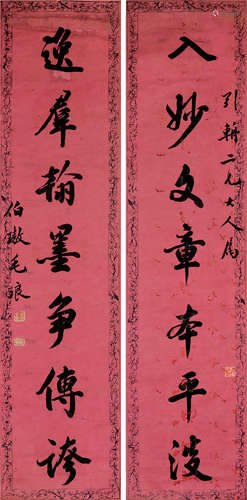 引轩二兄大人属
入妙文章本平淡
逸群翰墨争传誇
伯璈毛琅